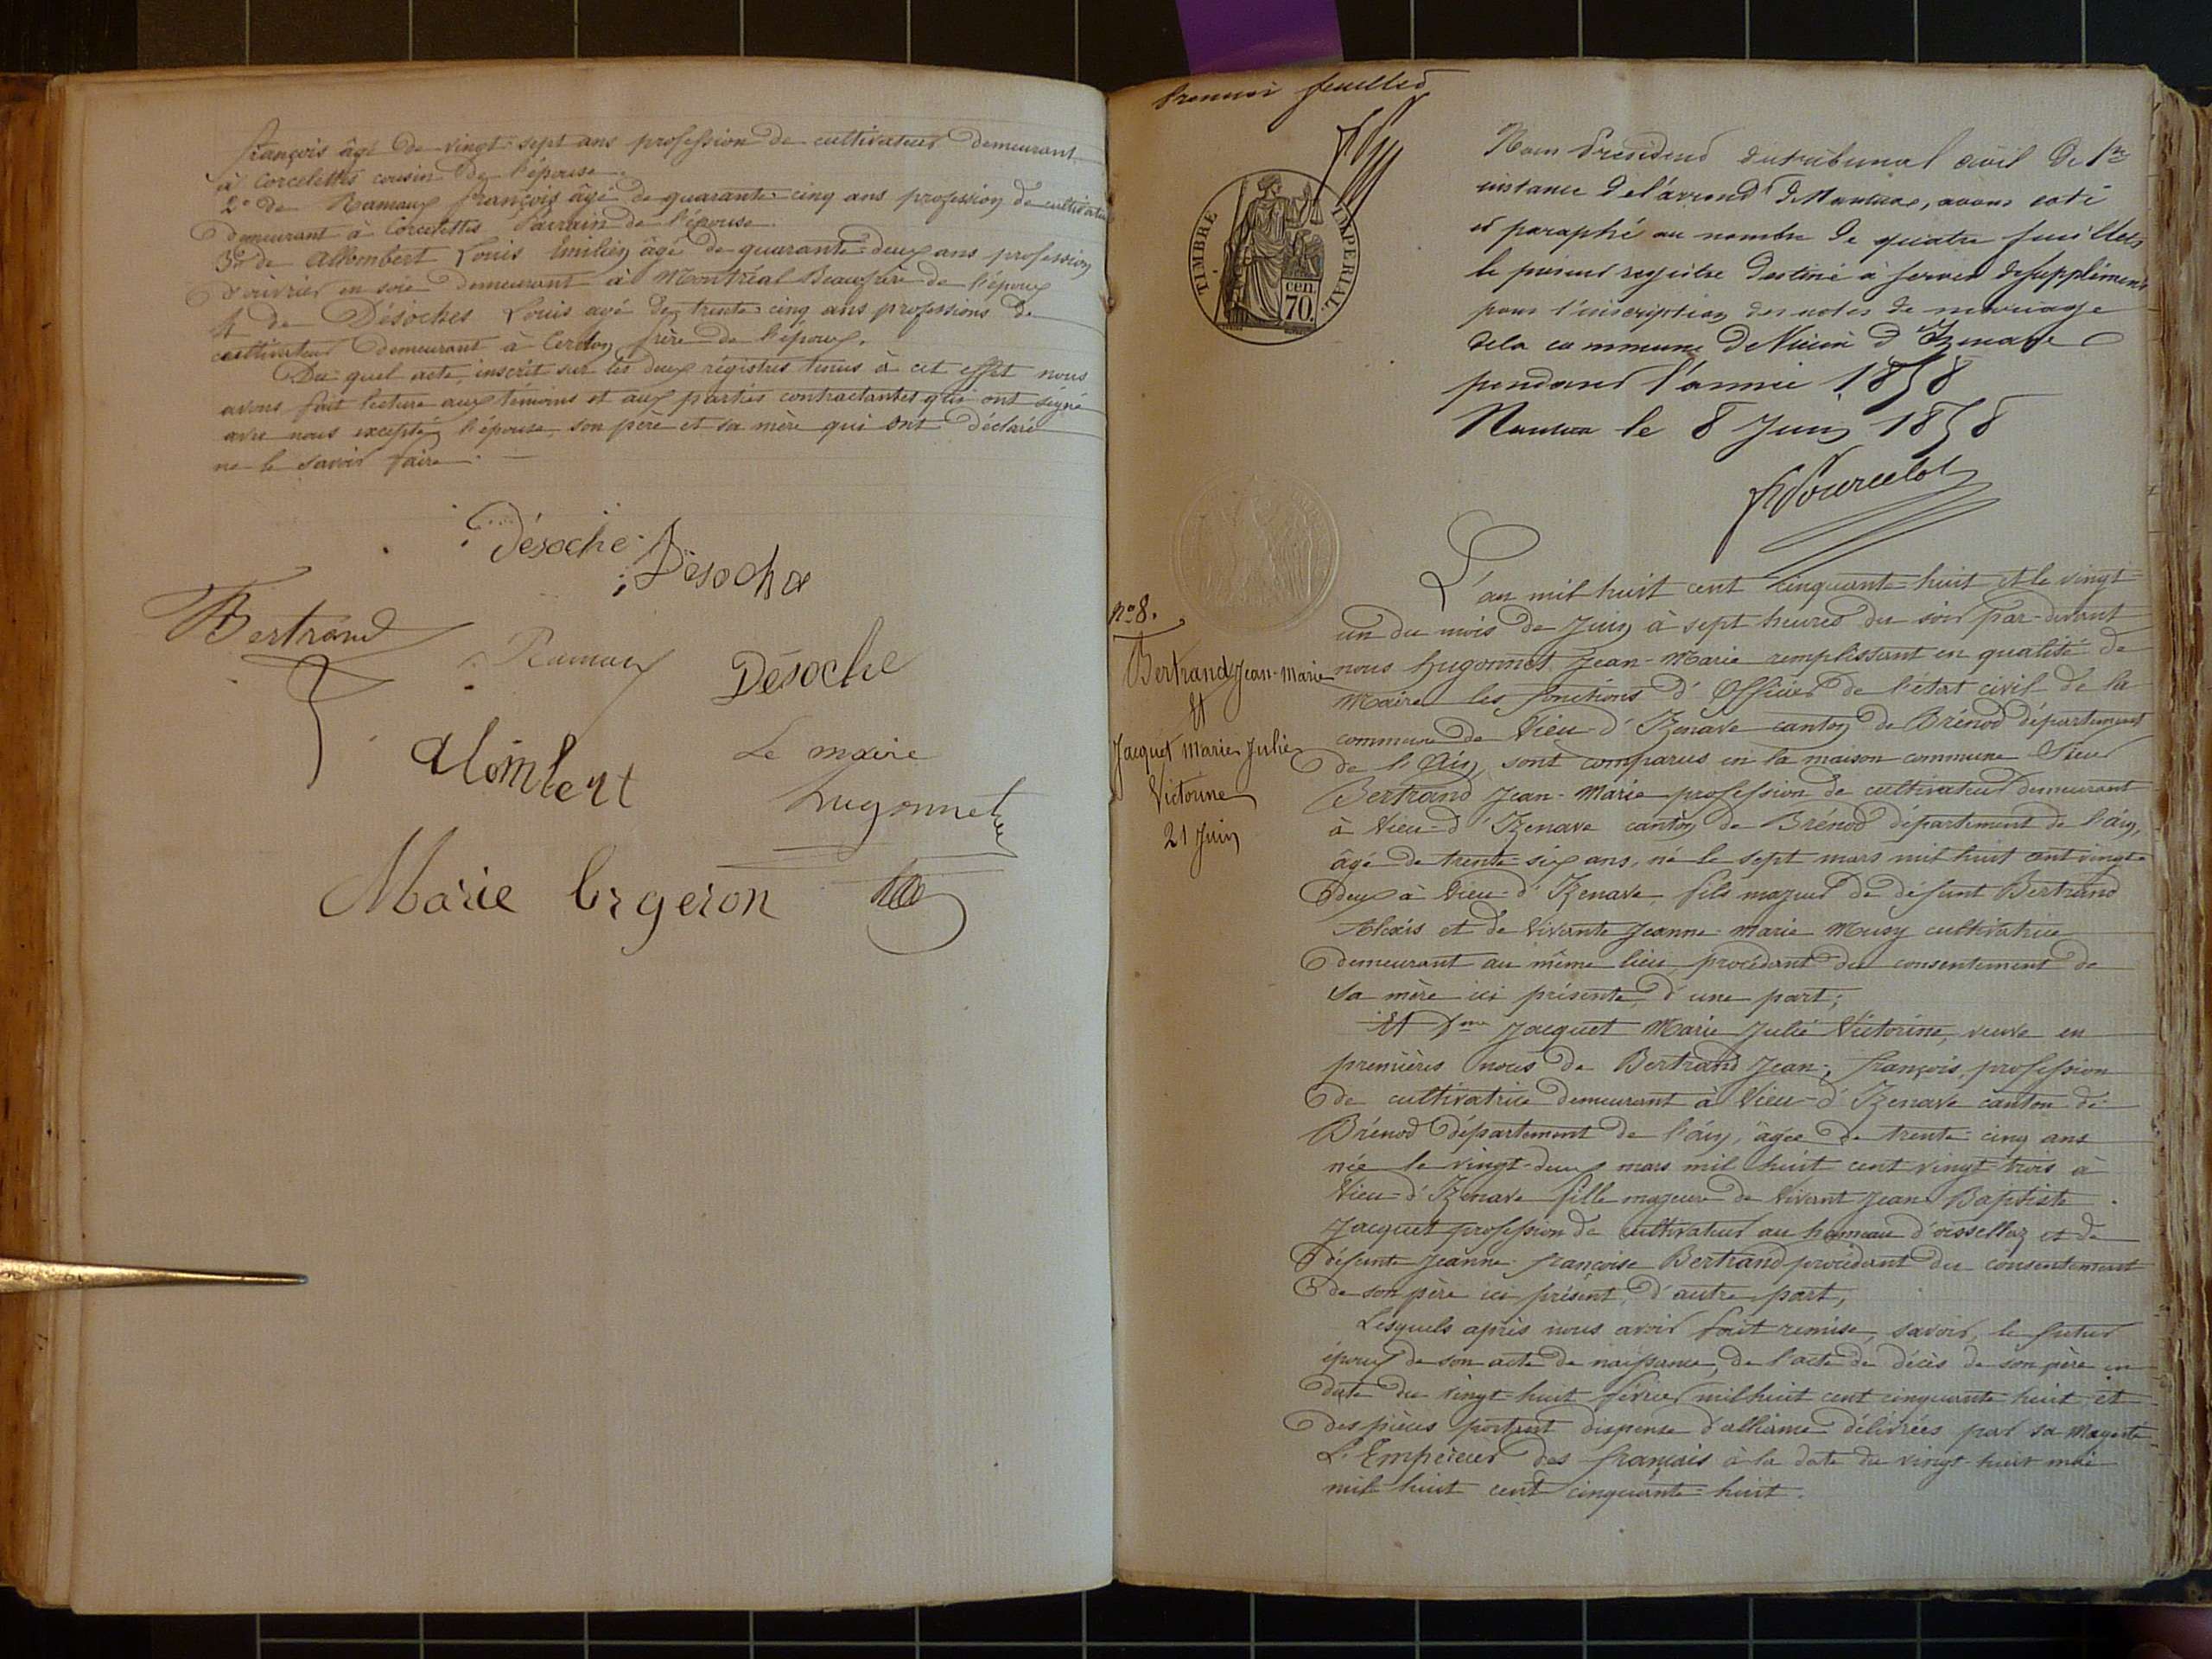 françois âgé de vingt-sept ans profession de cultivateur demeurant
à Corcelettes cousin de l'épouse.
2º de Ramaux françois âgé de quarante-cinq ans profession de cultivateur
demeurant à Corcelettes Parrain de l'épouse.
3º de Allombert Louis Emilien âgé de quarante-deux ans profession
d'ouvrier en soie demeurant à Montréal Beaufrère de l'époux
4 de Désoches Louis agé de trente cinq ans professions de
cultivateur demeurant à Cerdon frère de l'époux.
Du quel acte, inscrit sur les deux régistres tenus à cet effet nous
avons fait lecture aux témoins et aux parties contractantes qui ont signé
avec nous excepté l'épouse, son père et sa mère qui ont déclaré
ne le savoir faire.
Désoche
Désoche
Bertrand
Ramaux
Désoche
Alombert
Le maire
hugonnet
Marie Ergeron
premier feuillet
TIMBRE IMPERIAL
cen.
70.
Nous Président du tribunal civil de 1re
instance de l'arrond.t de Nantua, avons coté
et paraphé au nombre de quatre feuillets
le présent registre destiné à servir de supplément
pour l'inscription des actes de mariage
de la commune de Vieux d'Izenave
pendant l'année 1858
Nantua le 8 Juin 1858
nº 8.
Bertrand Jean-Marie
Et
Jacquet Marie Julie
Victorine
21 Juin
L'an mil huit cent cinquante-huit et le vingt-
un du mois de Juin à sept heures du soir par-devant
nous hugonnet Jean-Marie remplissant en qualité de
Maire les fonctions d'Officier de l'état civil de la
commune de Vieu-d'Izenave canton de Brénod département
de l'Ain, sont comparus en la maison commune Sieur
Bertrand Jean-Marie profession de cultivateur demeurant
à Vieu-d'Izenave canton de Brénod département de l'ain,
âgé de trente-six ans, né le sept mars mil huit cent vingt-
deux à Vieu-d'Izenave fils majeur de défunt Bertrand
Alexis et de vivante Jeanne-marie Musy cultivatrice
demeurant au même lieu, procédant du consentement de
sa mère ici présente, d'une part;
Et Dme Jacquet Marie Julie Victorine, veuve en
premières noces de Bertrand Jean-françois, profession
de cultivatrice demeurant à Vieu-d'Izenave canton de
Brénod département de l'ain, âgée de trente-cinq ans
née le vingt-deux mars mil huit cent vingt-trois à
Vieu-d'Izenave fille majeure de vivant Jean Baptiste
Jacquet profession de cultivateur au hameau d'oissellaz et de
défunte Jeanne-françoise Bertrand procédant du consentement
de son père ici présent, d'autre part;
Lesquels après nous avoir fait remise, savoir, le futur
époux de son acte de naissance, de l'acte de décès de son père en
date du vingt-huit février mil huit cent cinquante huit et
des pièces portant dispense d'alliance délivrées par sa Majesté
L'Empereur des français à la date du vingt-huit mai
mil huit cent cinquante-huit.